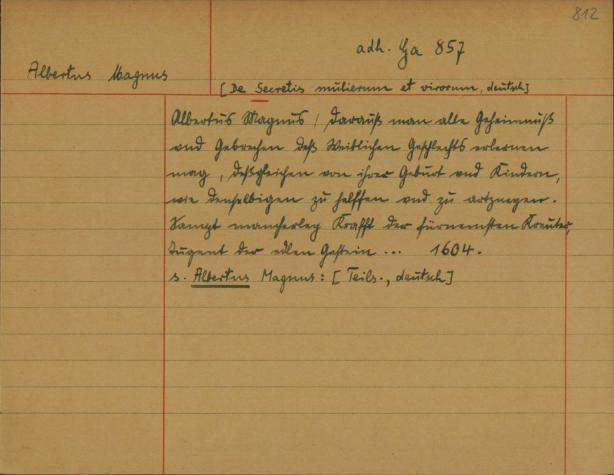 812
adh. Ga 857
Albertus Magnus
[De Secretis mulierum et virorum, deutsch]
Albertus Magnus / Darauß man alle Geheimnuß
vnd Gebrechen deß Weiblichen Geschlechts erlernen
mag, deßgleichen von ihrer Geburt vnd Kindern,
wie denselbigen zu helffen vnd zu artzneyen.
Sampt mancherley Krafft der fürnemsten Kreuter,
Tugent der edlen Gestein ... 1604.
s. Albertus Magnus: [Teils., deutsch]